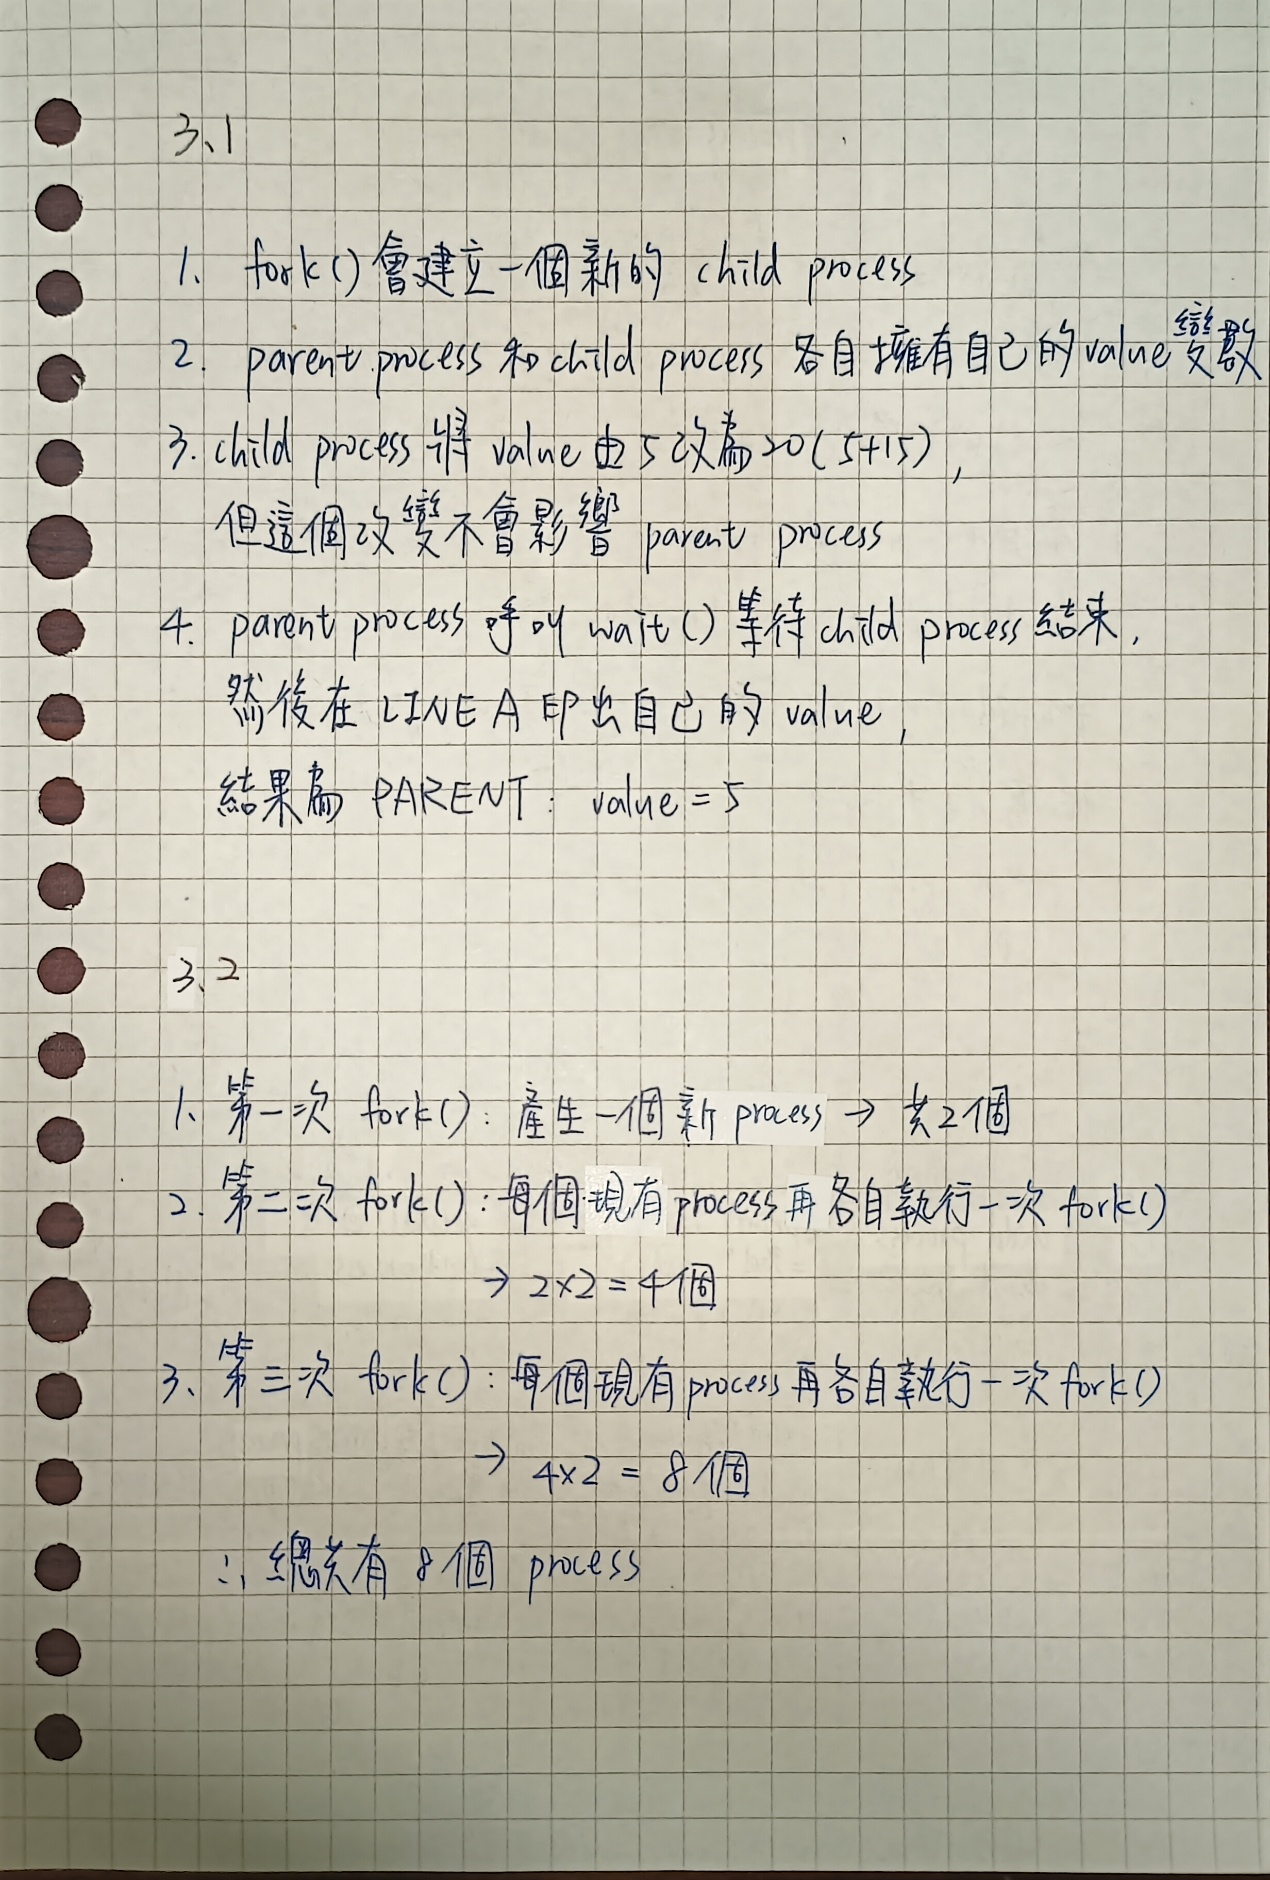 3、1
1、 fork()會建立一個新的 child process
2. parent process 和 child process 各自擁有自己的 value 變數
3. child process 將 value 由 5 改為 20 (5+15),
但這個改變不會影響 parent process
4. parent process 呼叫 wait() 等待 child process 結束,
然後在 LINE A 印出自己的 value,
結果為 PARENT: value = 5
3、2
1、第一次 fork(): 產生一個新 process → 共2個
2、第二次 fork(): 每個現有 process 再各自執行一次 fork()
→ 2×2 = 4個
3、第三次 fork(): 每個現有 process 再各自執行一次 fork()
→ 4×2 = 8個
∴ 總共有 8 個 process